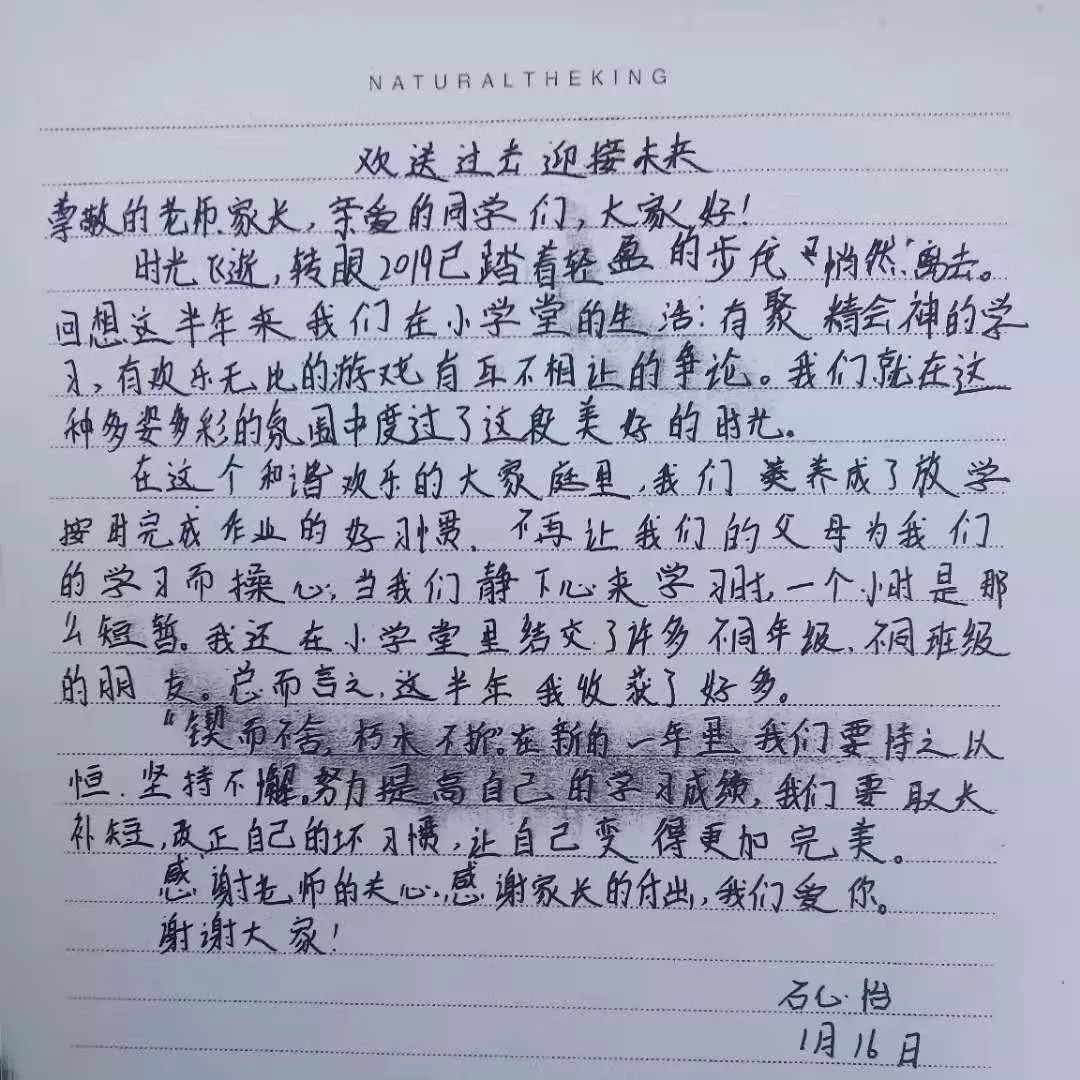 NATURALTHEKING
欢送过去 迎接未来
尊敬的老师家长，亲爱的同学们，大家好！
时光飞逝，转眼2019已踏着轻盈的步伐“悄然”离去。
回想这半年来我们在小学堂的生活：有聚精会神的学
习，有欢乐无比的游戏有互不相让的争论。我们就在这
种多姿多彩的氛围中度过了这段美好的时光。
在这个和谐欢乐的大家庭里，我们养成了放学
按时完成作业的好习惯，不再让我们的父母为我们
的学习而操心，当我们静下心来学习时，一个小时是那
么短暂。我还在小学堂里结交了许多不同年级，不同班级
的朋友。总而言之，这半年我收获了好多。
“锲而不舍，朽木不折”。在新的一年里我们要持之以
恒，坚持不懈。努力提高自己的学习成绩，我们要取长
补短，改正自己的坏习惯，让自己变得更加完美。
感谢老师的关心，感谢家长的付出，我们爱你。
谢谢大家！
石心怡
1月16日